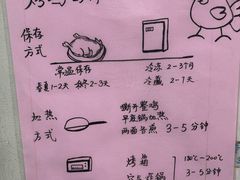 保存
方式
常温保存
冷冻 2-3个月
春夏1-2天 秋冬2-3天
冷藏 2-7天
加热
方式
撕开整鸡
平底锅加热
两面各煎 3-5分钟
烤箱
180℃-200℃
3-5分钟